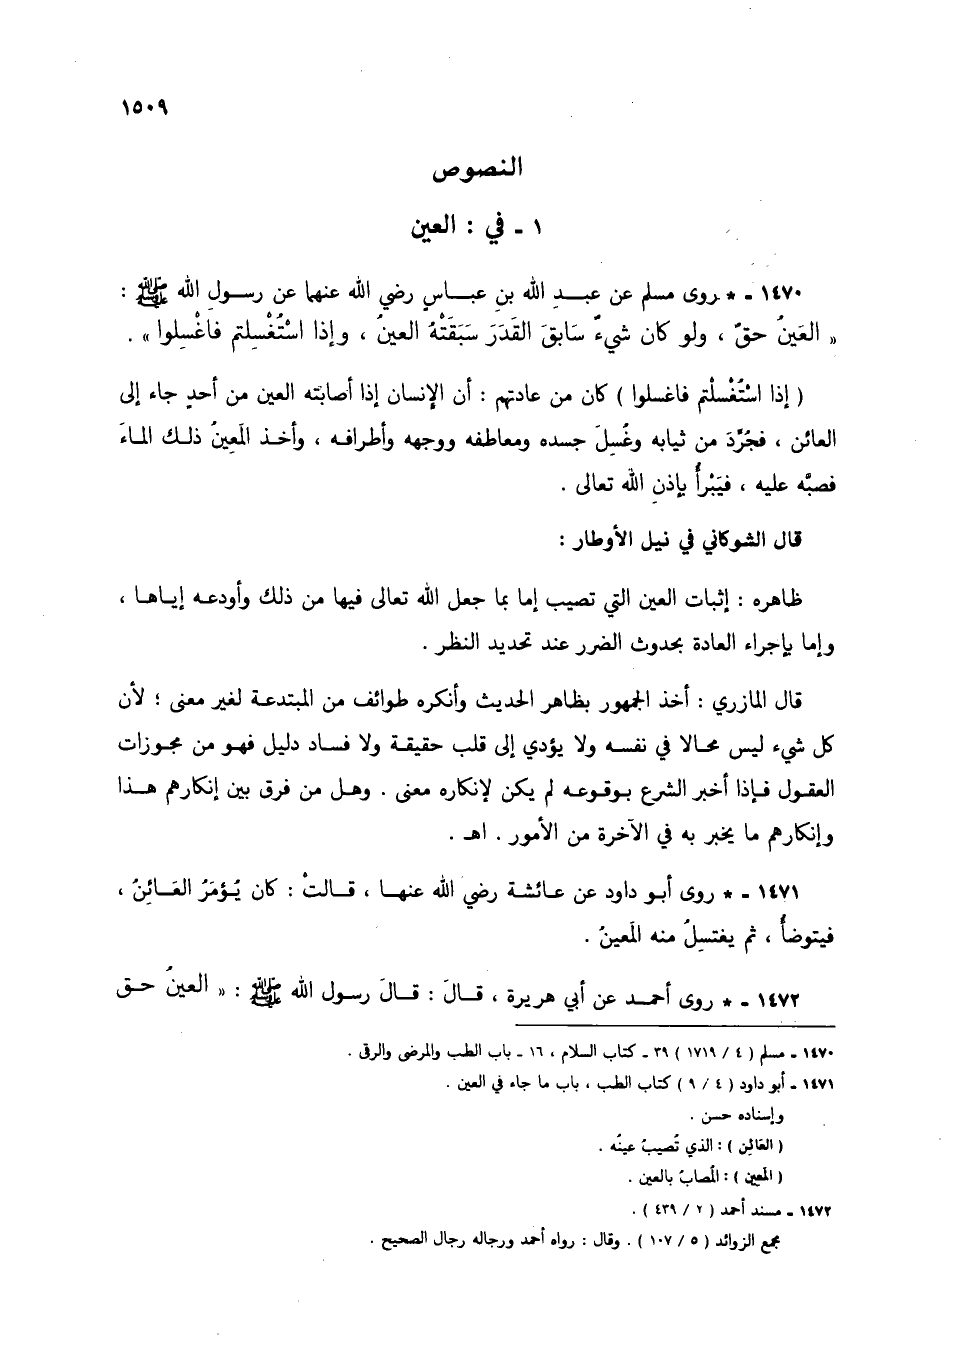 ١٥٠٩
النصوص
١ - في : العين
١٤٧٠ - * روى مسلم عن عبـد الله بنِ عبـاسٍ رضي الله عنهما عن رسـولِ الله ﷺ :
« العَينُ حقٌ ، ولو كان شيءٌ سَابقَ القَدَرَ سَبَقَتْهُ العينُ ، وإذا اسْتُغْسِلتم فاغْسِلوا » .
( إذا اسْتُغْسلْتم فاغسلوا ) كان من عادتهم : أن الإنسان إذا أصابته العين من أحدٍ جاء إلى
العائن ، فجُرِّدَ من ثيابه وغُسِلَ جسده ومعاطفه ووجهه وأطرافه ، وأخذ المَعِينُ ذلك الماءَ
فصبَّه عليه ، فيَبْرأُ بإذنِ الله تعالى .
قال الشوكاني في نيل الأوطار :
ظاهره : إثبات العين التي تصيب إما بما جعل الله تعالى فيها من ذلك وأودعه إياها ،
وإما بإجراء العادة بحدوث الضرر عند تحديد النظر .
قال المازري : أخذ الجمهور بظاهر الحديث وأنكره طوائف من المبتدعة لغير معنى ؛ لأن
كل شيء ليس محالا في نفسه ولا يؤدي إلى قلب حقيقة ولا فساد دليل فهو من مجوزات
العقول فإذا أخبر الشرع بوقوعه لم يكن لإنكاره معنى . وهل من فرق بين إنكارهم هذا
وإنكارهم ما يخبر به في الآخرة من الأمور . اهـ .
١٤٧١ - * روى أبو داود عن عائشة رضي الله عنها ، قالتْ : كان يُؤمَرُ العَائِنُ ،
فيتوضأُ ، ثم يغتسِلُ منه المَعينُ .
١٤٧٢ - * روى أحمد عن أبي هريرة ، قالَ : قالَ رسول الله ﷺ : « العينُ حق
١٤٧٠ - مسلم ( ٤ / ١٧١٩ ) ٣٩ - كتاب السلام ، ١٦ - باب الطب والمرضى والرقى .
١٤٧١ - أبو داود ( ٤ / ٩ ) كتاب الطب ، باب ما جاء في العين .
وإسناده حسن .
( العَائِن ) : الذي تُصيبُ عينُه .
( المَعِين ) : المُصابُ بالعين .
١٤٧٢ - مسند أحمد ( ٢ / ٤٣٩ ) .
مجمع الزوائد ( ٥ / ١٠٧ ) . وقال : رواه أحمد ورجاله رجال الصحيح .